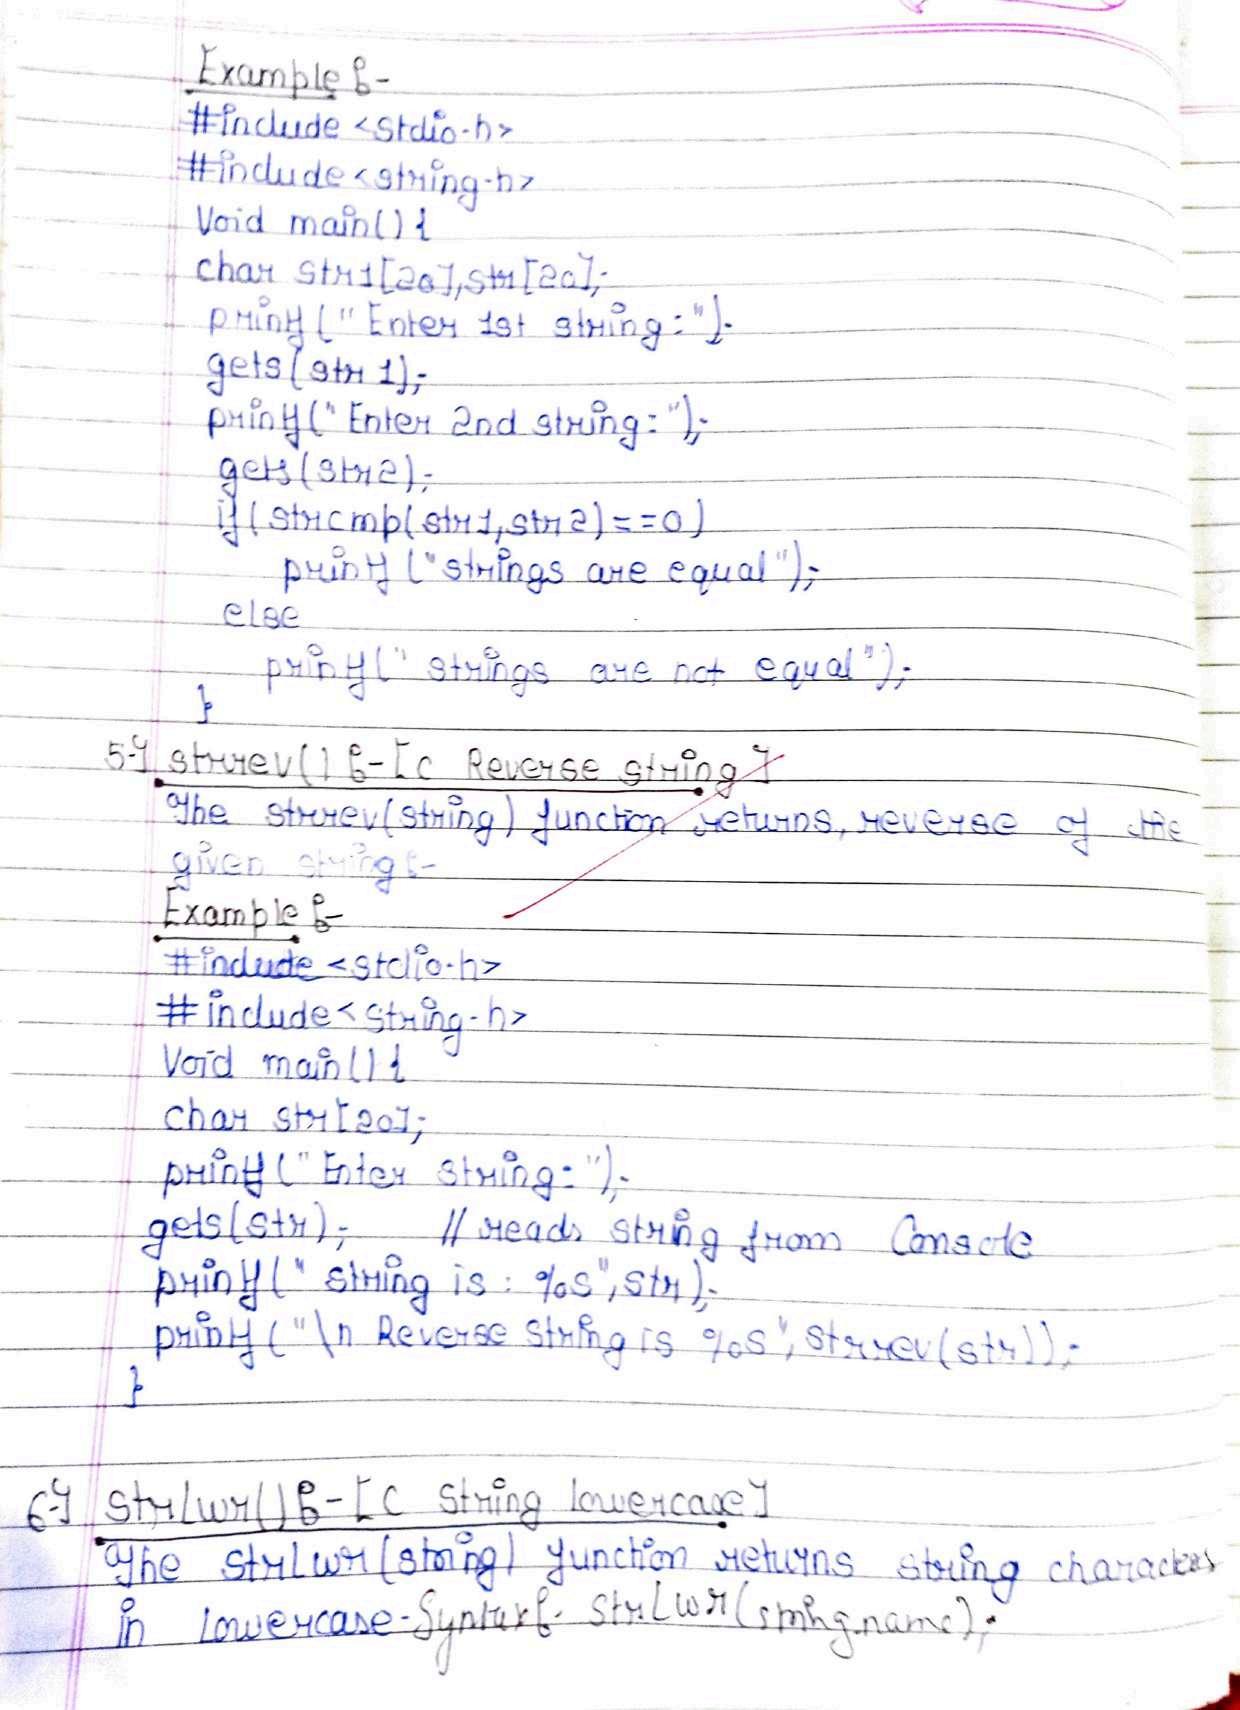 Example :-
#include <stdio.h>
#include<string.h>
Void main(){
char str1[20],str[20];
printf("Enter 1st string:");
gets(str1);
printf("Enter 2nd string:");
gets(str2);
if(strcmp(str1,str2)==0)
printf("strings are equal");
else
printf("strings are not equal");
}
5-] strrev() :- [C Reverse string]
The strrev(string) function returns, reverse of the
given string:-
Example :-
#include <stdio.h>
#include<string.h>
Void main(){
char str[20];
printf("Enter string:");
gets(str); // reads string from Console
printf("string is: %s",str);
printf("\n Reverse String is %s",strrev(str));
}
6-] strlwr() :- [C String lowercase]
The strlwr(string) function returns string characters
in lowercase. Syntax:- strlwr(string.name);